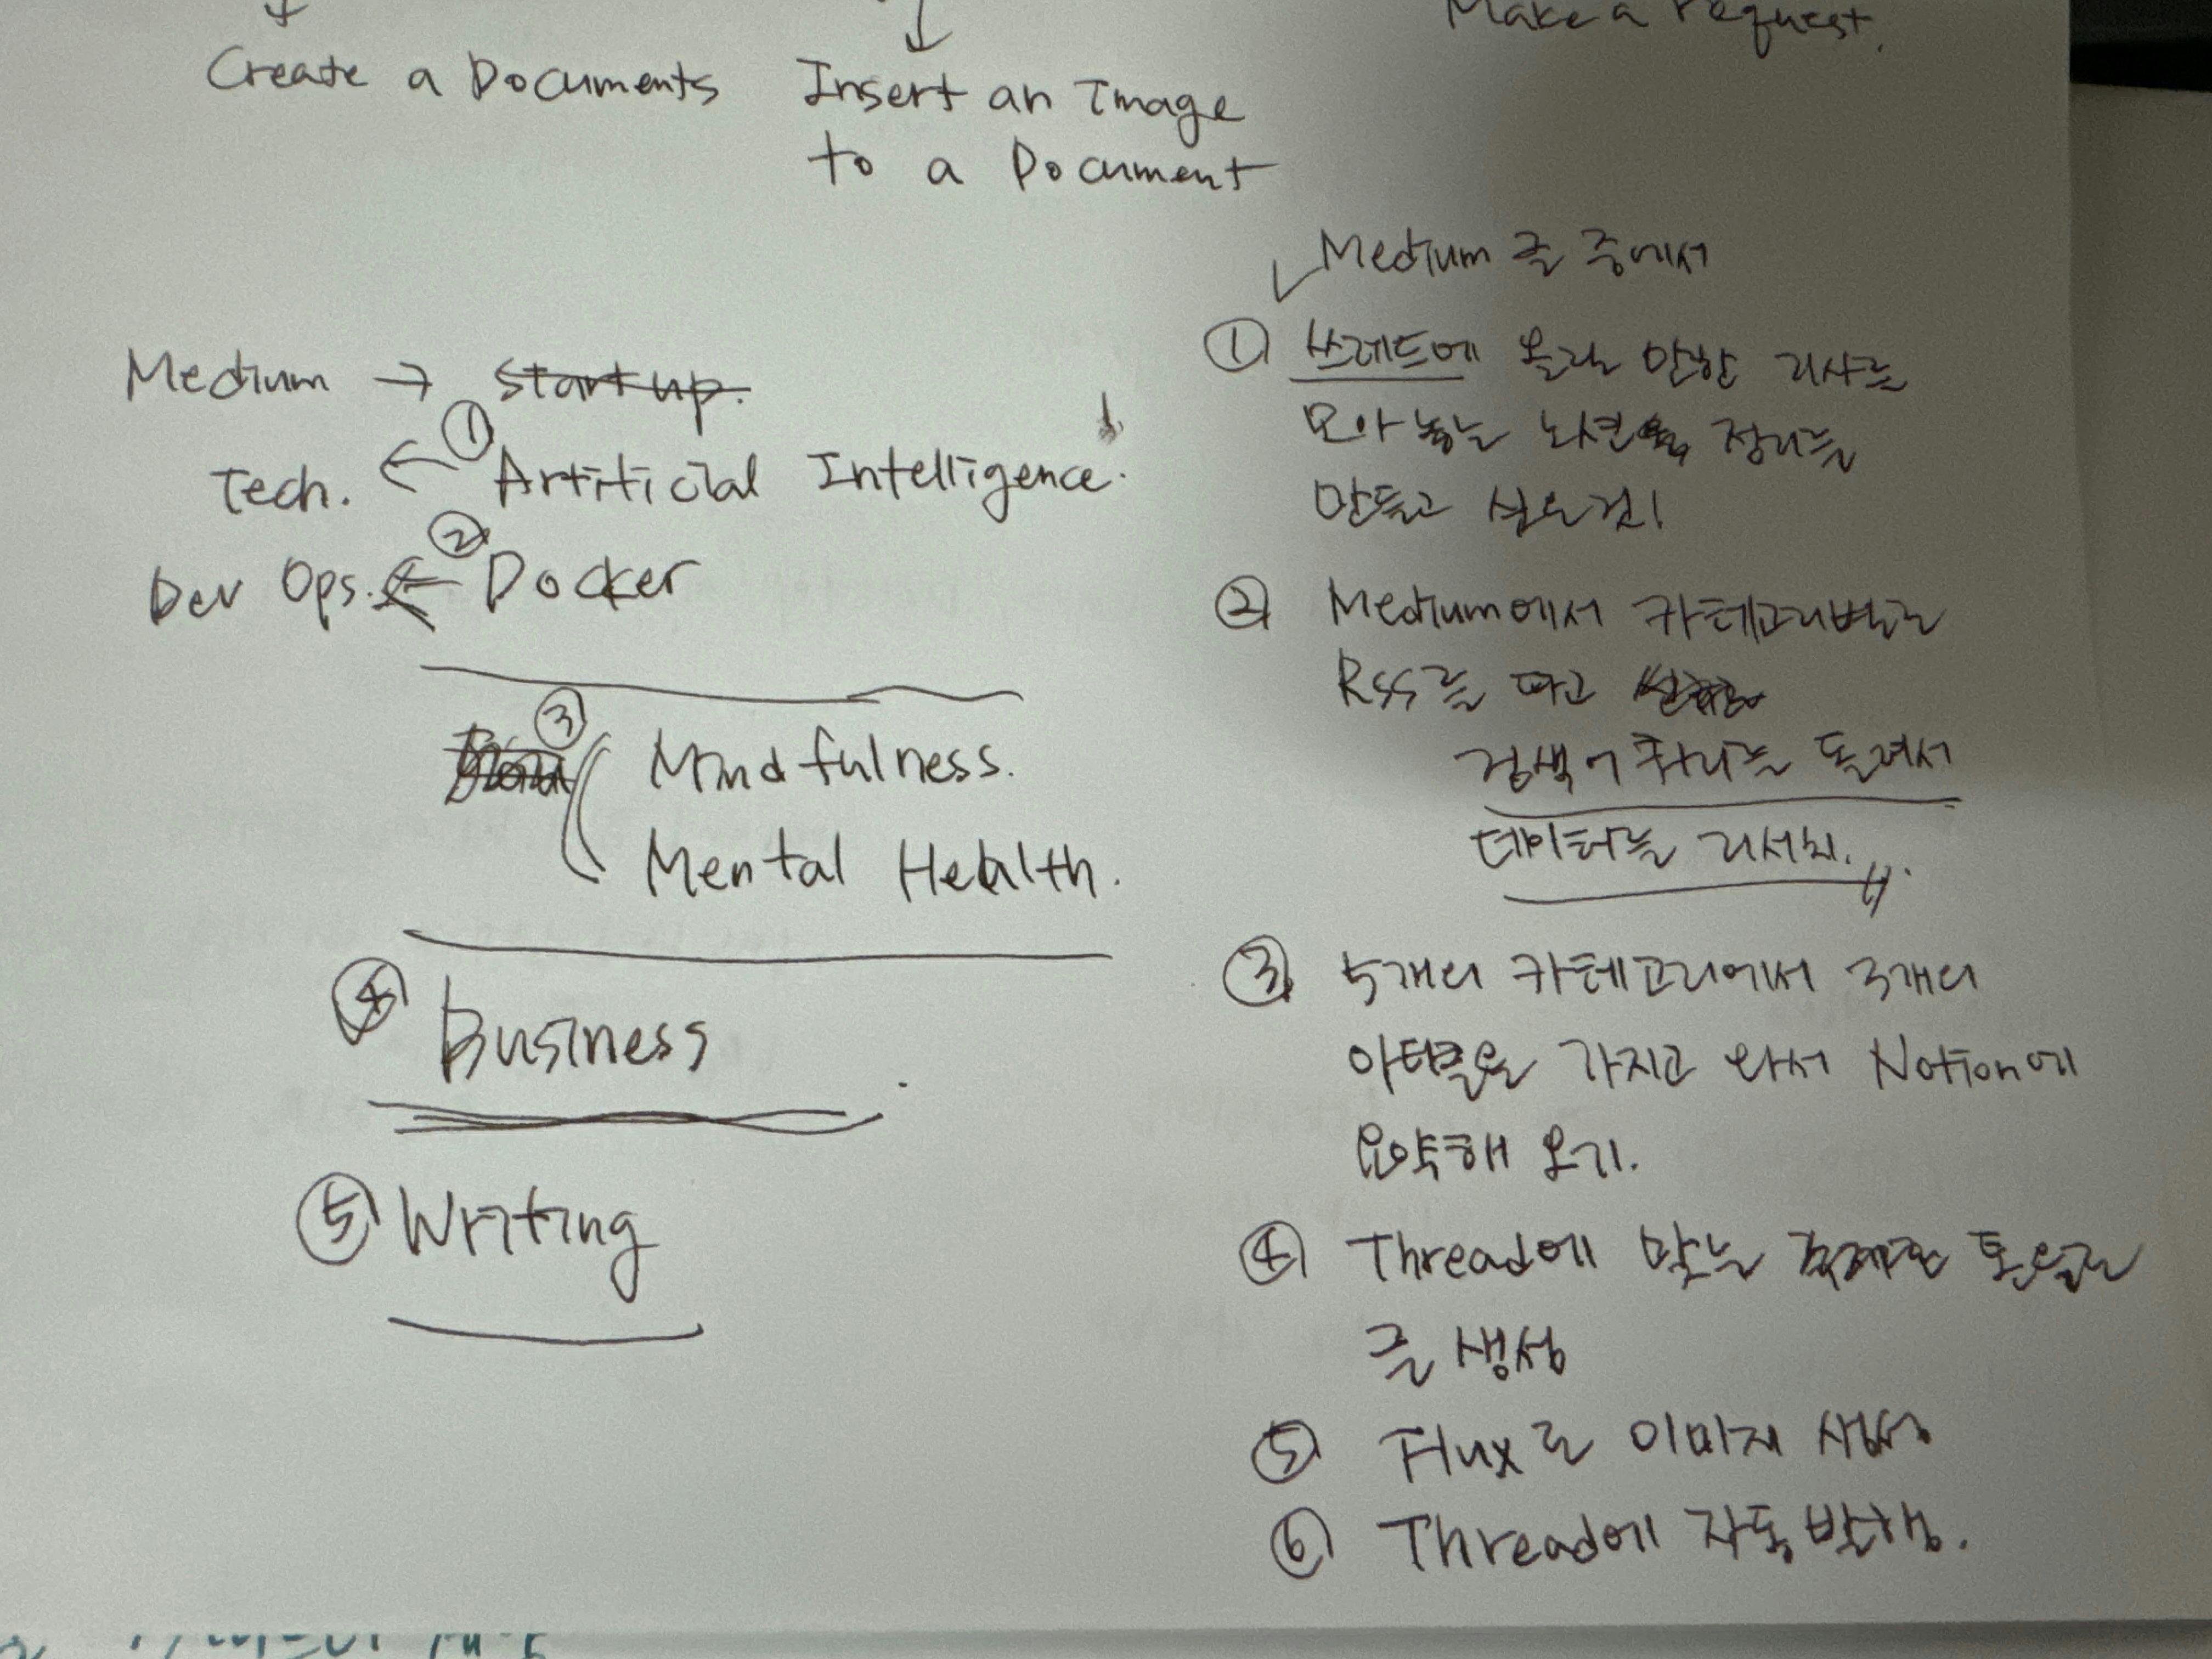 Make a request.
Create a Documents
Insert an Image
to a Document
Medium → Startup.
Tech. ← ① Artificial Intelligence.
Dev Ops. ← ② Docker
③
Mindfulness.
Mental Health.
④ Business
⑤ Writing
✓ Medium 글 중에서
① 쓰레드에 올릴 만한 기사를
모아 놓는 노션 정리를
만들고 싶은 것!
② Medium에서 카테고리별로
RSS를 따고
검색어 쿼리를 돌려서
데이터를 리서치.
③ 5개의 카테고리에서 3개의
아티클을 가지고 와서 Notion에
요약해 오기.
④ Thread에 맞는 톤으로
글 생성
⑤ Flux로 이미지 생성
⑥ Thread에 자동 발행.